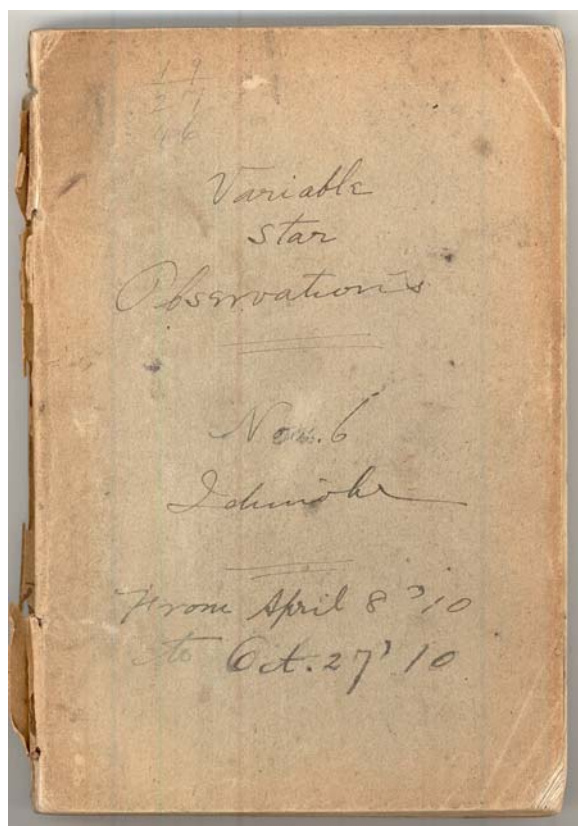 19
27
46
Variable
Star
Observations
No. 6
Ichinohe
From April 8 '10
to Oct. 27 '10